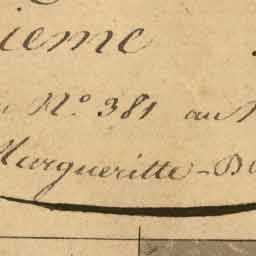 ieme
N° 381 au
Margueritte-B